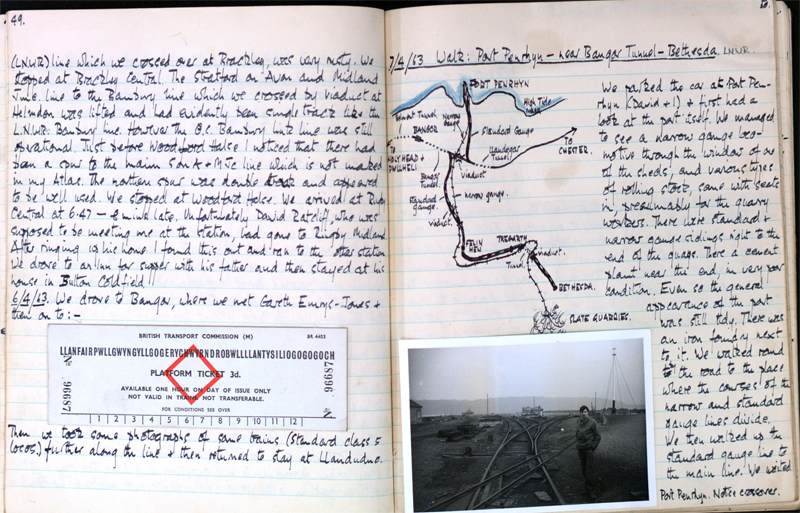 49.
(LNWR) line which we crossed over at Brackley, was very rusty. We
stopped at Brackley Central. The Stratford on Avon and Midland
Junc. line to the Banbury line which we crossed by viaduct at
Helmdon was lifted and had evidently been single track like the
LNWR Banbury line. However the G.C. Banbury link line was still
operational. Just before Woodford Halse I noticed that there had
been a spur to the main S on A & MJc line which is not marked
in my Atlas. The northern spur was double track and appeared
to be well used. We stopped at Woodford Halse. We arrived at Rugby
Central at 6.47 - mins late. Unfortunately David Ratcliff, who was
supposed to be meeting me at the station, had gone to Rugby Midland.
After ringing up his home I found this out and ran to the other station.
We drove to an Inn for supper with his father and then stayed at his
house in Sutton Coldfield.
6/4/63. We drove to Bangor, where we met Gareth Emrys-Jones &
then on to:-
BRITISH TRANSPORT COMMISSION (M) BR 4403
LLANFAIRPWLLGWYNGYLLGOGERYCHWYRNDROBWLLLLANTYSILIOGOGOGOCH
PLATFORM TICKET 3d.
AVAILABLE ONE HOUR ON DAY OF ISSUE ONLY
NOT VALID IN TRAINS. NOT TRANSFERABLE.
FOR CONDITIONS SEE OVER
1 2 3 4 5 6 7 8 9 10 11 12
96687
96687
Then we took some photographs of some trains (Standard class 5
locos.) further along the line & then returned to stay at Llandudno.
7/4/63 Walk: Port Penrhyn - near Bangor Tunnel - Bethesda. LNWR
PORT PENRHYN
High Tide
Belmont Tunnel
Narrow gauge
Standard Gauge
BANGOR
Llandegai Tunnel
TO CHESTER
TO HOLYHEAD & PWLLHELI
Viaduct
Bangor Tunnel
narrow gauge.
Standard gauge
Viaduct
FELIN HEN
TREGARTH
Viaduct.
Tunnel
BETHESDA.
SLATE QUARRIES.
We parked the car at Port Pen-
rhyn (David & I) & first had a
look at the port itself. We managed
to see a narrow gauge loco-
motive through the window of one
of the sheds, and various types
of rolling stock, some with seats
in, presumably for the quarry
workers. There were standard &
narrow gauge sidings right to the
end of the quay. There a cement
plant near the end, in very poor
condition. Even so the general
appearance of the port
was still tidy. There was
an iron foundry next
to it. We walked round
to the road to the place
where the courses of the
narrow and standard
gauge lines divide.
We then walked up the
standard gauge line to
the main line. We waited
Port Penrhyn. Notice crossover.